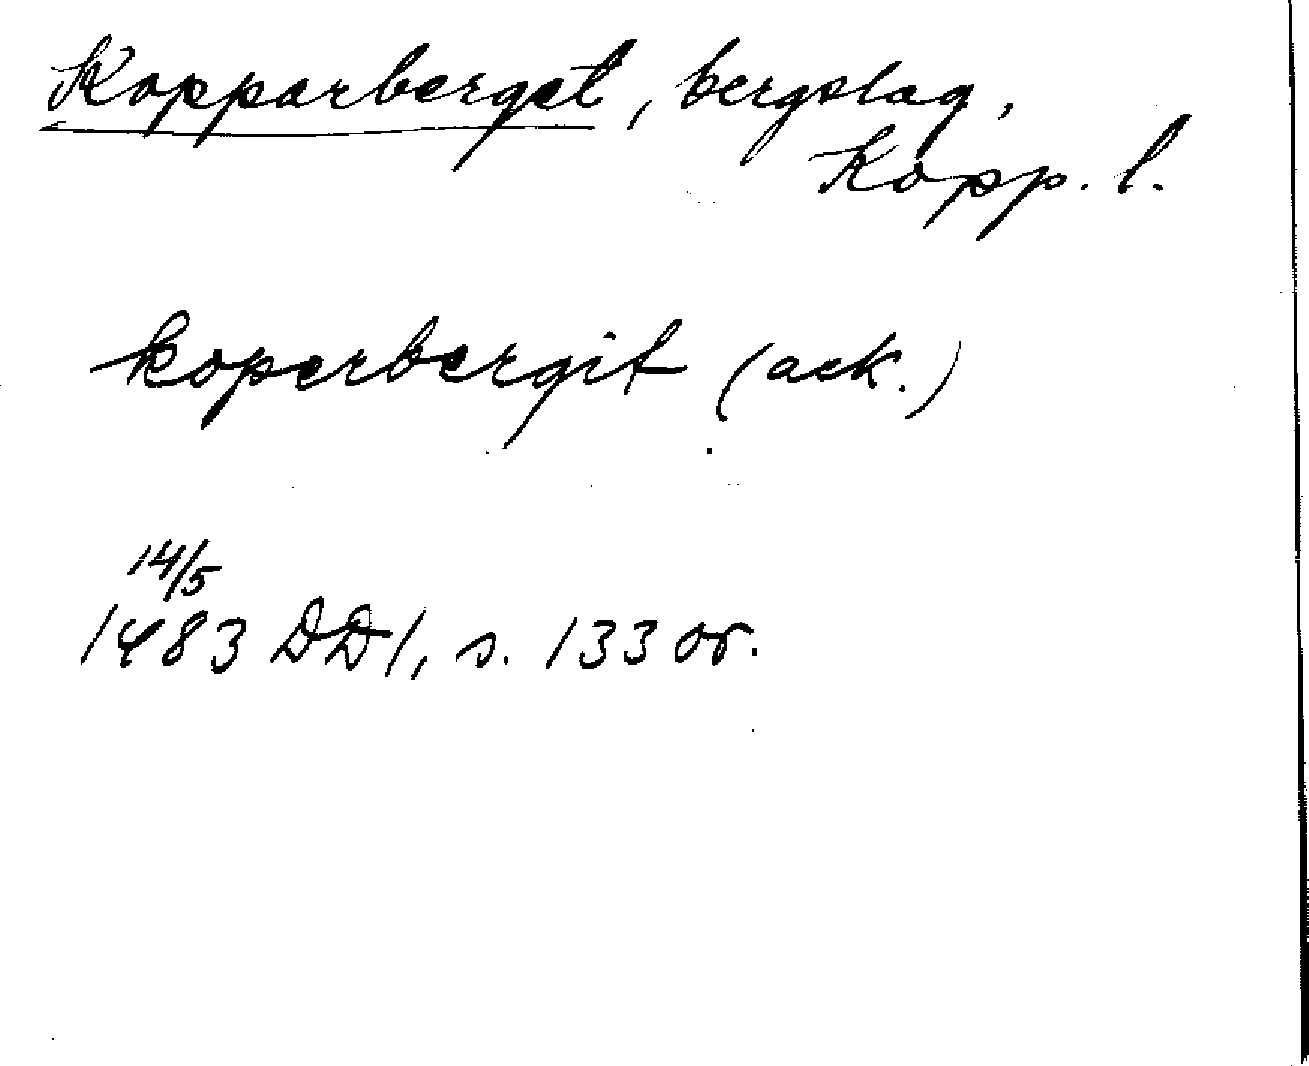 Kopparberget, bergslag,
Kopp. l.
koperbergit (ack.)
14/5
1483 DD1, s. 133 or.